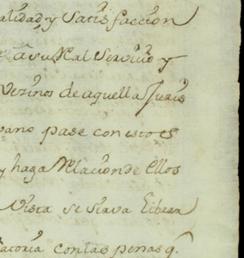 alidad, y Satisfaccion
a su Real Servicio y
Vezinos de aquella Juris
bano pase con estos
y haga Relacion de ellos
Vista se sirva librar
catoria con las penas q.